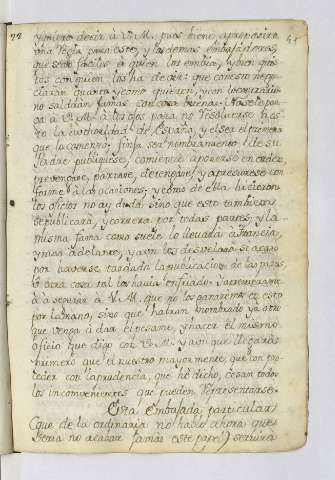 22
41
y quiero decir à V. M. pues viene a proposito
una regla para este, y los demas embajadores,
que sera faciles à quien los embia, y bien
los con quien las ha de
quanta y como quieren, y con
no saldràn jamas con cosa buena.
à V. M. à los ojos para no
la authoridad de España, y el ser el primero
que la comenzo; finja ser nombramiento, i de su
Padre publiquese, comience a ponerse en orden
prevengase, parttase, detengase, y apresurese con
forme à las ocasiones; y como de ella hicieron
los oficios no ay duda sino que esto tambien se
republicarà, y correra por todas partes, y la
misma fama como suele lo llevarà a Francia,
y mas adelante, y aun les desvelarà si acaso
por haverse tardado la publicacion de las pazes,
ò otra cosa tal los havia enfriado.
à asegurar à V. M. que no los ganaremos en esto
por la mano, sino que habràn nombrado ya otro
que venga à dar el pesame, y hacer el mismo
oficio que digo con V. M. y aun que llegarà
primero que el nuestro mayormente, que con pro-
ceder con la prudencia, que hè dicho, cesan todos
los inconvenientes que pueden representarse.
Esta Embajada particular
(que de la ordinaria no hablo ahora que
seria no acabar jamas este papel) serviria